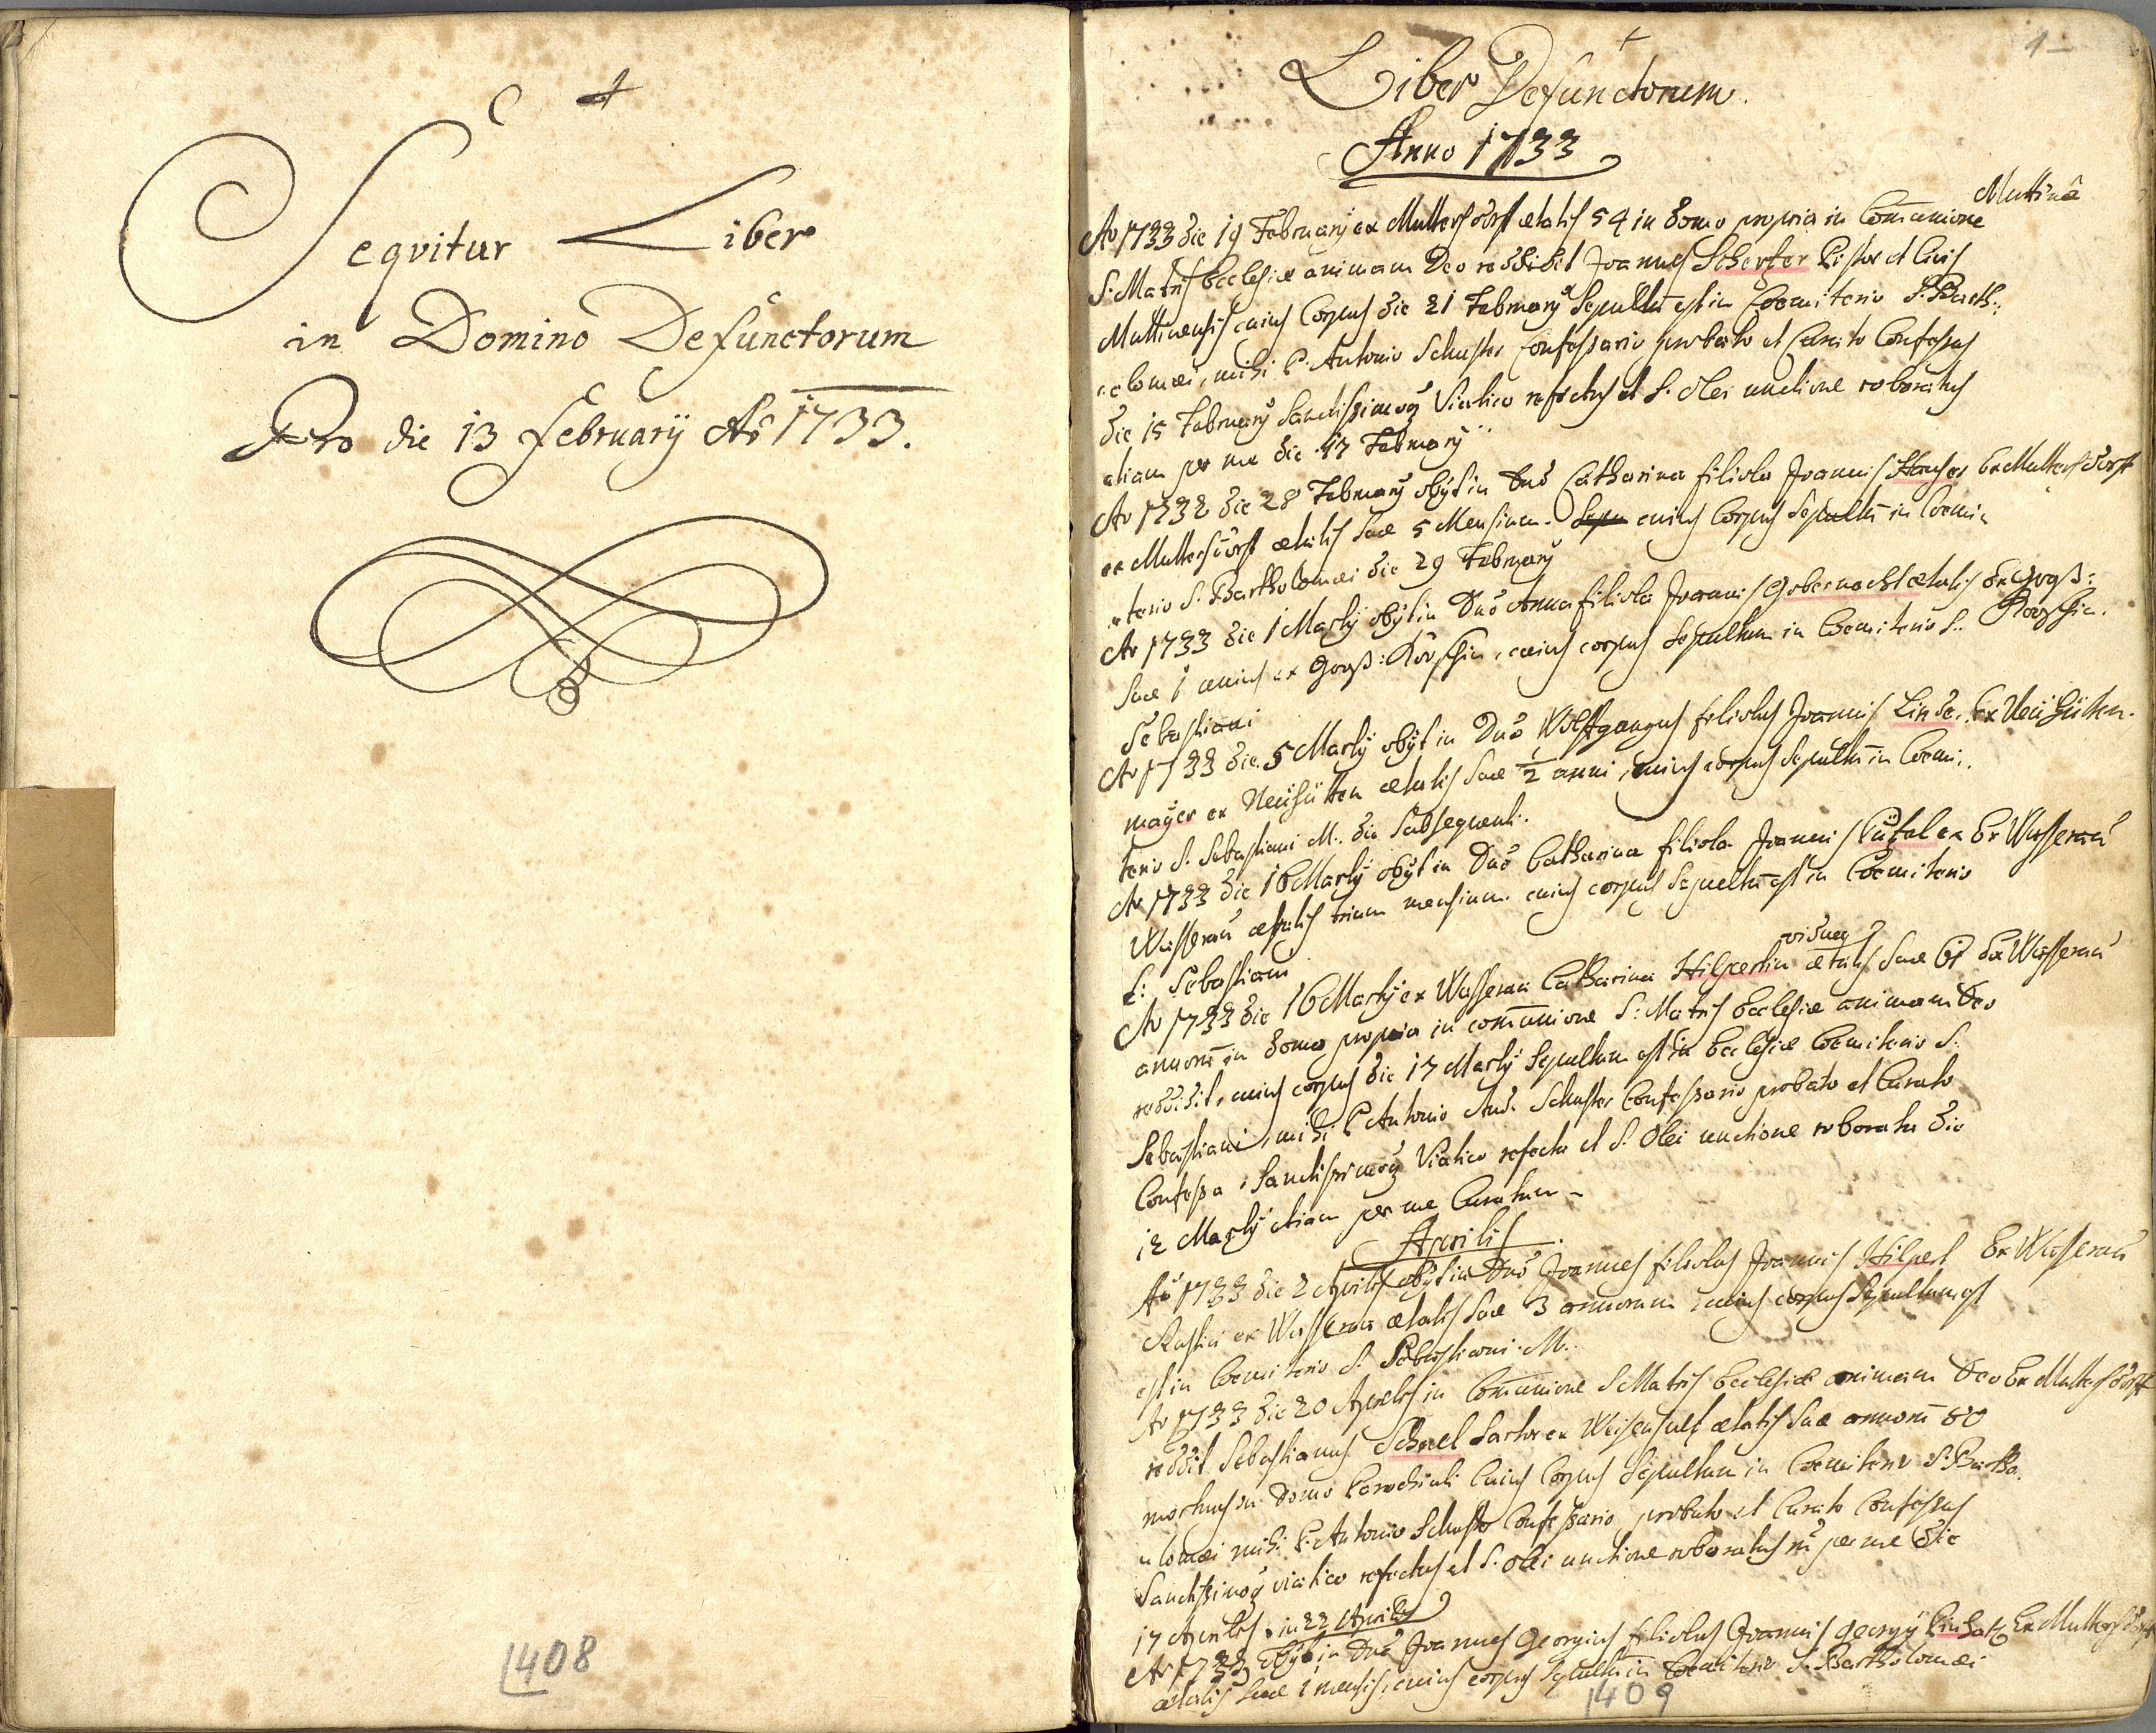 Seqvitur Liber
in Domino Defunctorum
Pro die 13 februarÿ Aõ 1733.
1408
1
Liber Defunctorum.
Anno 1733
Muttinã
Ao 1733 die 19 Februarÿ ex Muttersdorff ætatis 54 in domo propria in Com̄unione
S. Matris Ecclesiæ animam Deo reddidit Joannes Scherfer Pistor et Civis
Muttinensis cuius Corpus die 21 Februarÿ Sepultū est in Coemiterio S. Barth:
olomæi, mihi P. Antonio Schuster Confessario probato et Curato Confessus
die 15 Februarÿ Sanctissimoq Viatico refectus et S. Olei unctione roboratus
etiam per me die 17 Februarÿ
Ao 1732 die 28 Februarÿ obÿt in Dnõ Catharina filiola Joannis Ex Muttersdorff
ex Muttersdorff ætatis suæ 5 Mensium. Sepu cuius Corpus Sepultū in Coemi
terio S. Bartholomæi die 29 Februarÿ
Ao 1733 die 1 Martÿ obÿt in Dnõ Anna filiola Joannis Gobernacht ætatis Ex Groß:
suæ 1 annus ex Groß: , cuius corpus Sepultum in Coemiterio S.
Sebastiani
Ao 1733 die 5 Martÿ obÿt in Dnõ Wolffgangus filiolus Joannis Linde, Ex Neühütten.
mayer ex Neühütten ætatis suæ ½ anni, cuius corpus Sepultū in Coemi:
terio S. Sebastiani M. die Subsequenti.
Ao 1733 die 16 Martÿ obÿt in Dnõ Catharina filiola Joannis ex Ex Wasserau
Wasserau ætatis trium mensium. cuius corpus Sepultū est in Coemiterio
S: Sebastiani
viduæ
Ao 1733 die 16 Martÿ ex Wasserau Catharina Hilpertin ætatis suæ 61 Ex Wasserau
annorū in domo propria in com̄unione S: Matris Ecclesiæ animam Deo
reddidit, cuius corpus die 17 Martÿ Sepultum est in Ecclesiæ Coemiterio S.
Sebastiani, mihi P Antonio And. Schuster Confessario probato et Curato
Confessa, Sanctissimoq Viatico refecta et S. Olei unctione roborata die
12 Martÿ etiam per me Curatum
Aprilis.
Aõ 1733 die 2 Aprilis obÿt in Dnõ Joannes filiolus Joannis Hilpert Ex Wasserau
Rustici ex Wasserau ætatis suæ 3 annorum, cuius corpus Sepultum est
est in Coemiterio S. Sebastiani. M.
Ao 1733 die 20 Aprilis in Com̄unione S Matris Ecclesiæ animam Deo Ex Muttersdorff
reddit Sebastianus Schnel Sartor ex Weisensulz ætatis suæ annorū 80
mortuus in Domo Parochiali Cuius Corpus Sepultum in Coemiterio S. Bartho.
lomæi mihi P. Antonio Schuster Confessario, probato et Curato Confessus
Sanctissimoq viatico refectus et S. Olei unctione roboratus per me die
17 Aprilis. in 22 Aprilis
Ao 1733 obÿt in Dnõ Joannes Georgius filiolus Joannis Georgÿ Ex Muttersdorff
ætatis suæ 1 mensis, cuius corpus Sepultū in Coemiterio S. Bartholomæi
1409